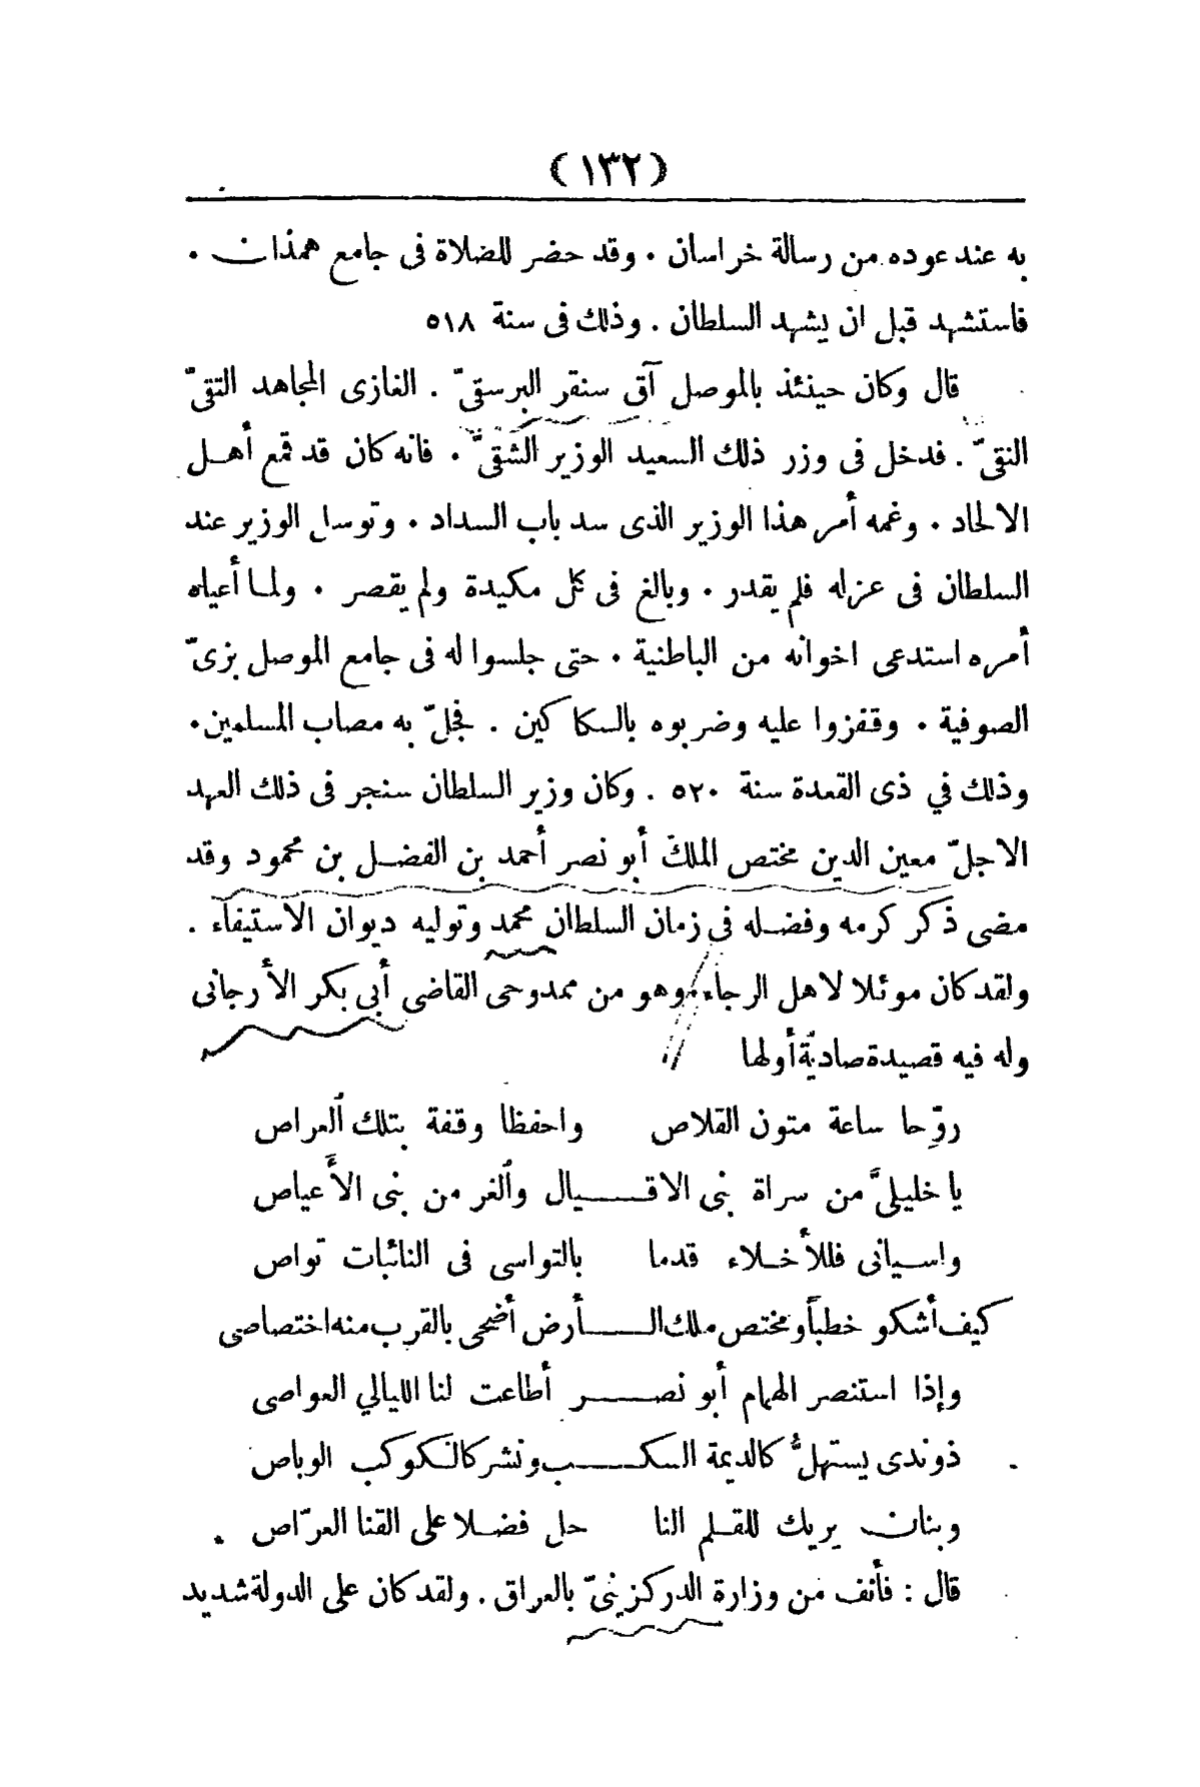 (١٣٢)
به عند عوده من رسالة خراسان . وقد حضر للضلاة فى جامع همذان .
فاستشهد قبل ان يشهد السلطان . وذلك فى سنة ٥١٨
قال وكان حينئذ بالموصل آق سنقر البرسقىّ . الغازى المجاهد التقىّ
النقىّ . فدخل فى وزر ذلك السعيد الوزير الشقىّ . فانه كان قد قمع أهل
الالحاد . وغمه أمر هذا الوزير الذى سد باب السداد . وتوسل الوزير عند
السلطان فى عزله فلم يقدر . وبالغ فى كل مكيدة ولم يقصر . ولما أعياه
أمره استدعى اخوانه من الباطنية . حتى جلسوا له فى جامع الموصل بزىّ
الصوفية . وقفزوا عليه وضربوه بالسكاكين . فجلّ به مصاب المسلمين .
وذلك في ذى القعدة سنة ٥٢٠ . وكان وزير السلطان سنجر فى ذلك العهد
الاجلّ معين الدين مختص الملك أبو نصر أحمد بن الفضل بن محمود وقد
مضى ذكر كرمه وفضله فى زمان السلطان محمد وتوليه ديوان الاستيفاء .
ولقد كان موئلا لاهل الرجاء . وهو من ممدوحى القاضى أبى بكر الأرجانى
وله فيه قصيدة صاديّة أولها
روّحا ساعة متون القلاص واحفظا وقفة بتلك العراص
يا خليلىَّ من سراة بنى الاقـيال والغر من بنى الأَعياص
واسيانى فللأخلاء قدما بالتواسى فى النائبات تواص
كيف أشكو خطباً ومختص ملك الـأرض أضحى بالقرب منه اختصاصى
وإذا استنصر الهمام أبو نصـر أطاعت لنا الليالي العواصى
ذو ندى يستهلُّ كالديمة السكـب ونشر كالكوكب الوباص
وبنان يريك للقلم النا حل فضلا على القنا العرّاص .
قال : فأنف من وزارة الدركزينىّ بالعراق . ولقد كان على الدولة شديد